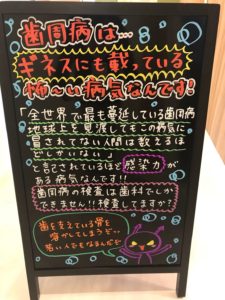 歯周病は…
ギネスにも載っている
怖～い病気なんです!
「全世界で最も蔓延している歯周病
地球上を見渡してもこの病気に
冒されてない人間は数えるほ
どしかいない」
と記されているほど感染力が
ある病気なんです!!
歯周病の検査は歯科でしか
できません!!検査してますか?
歯を支えている骨を
溶かしてしまうぞ…
若い人でもなるんだぞ